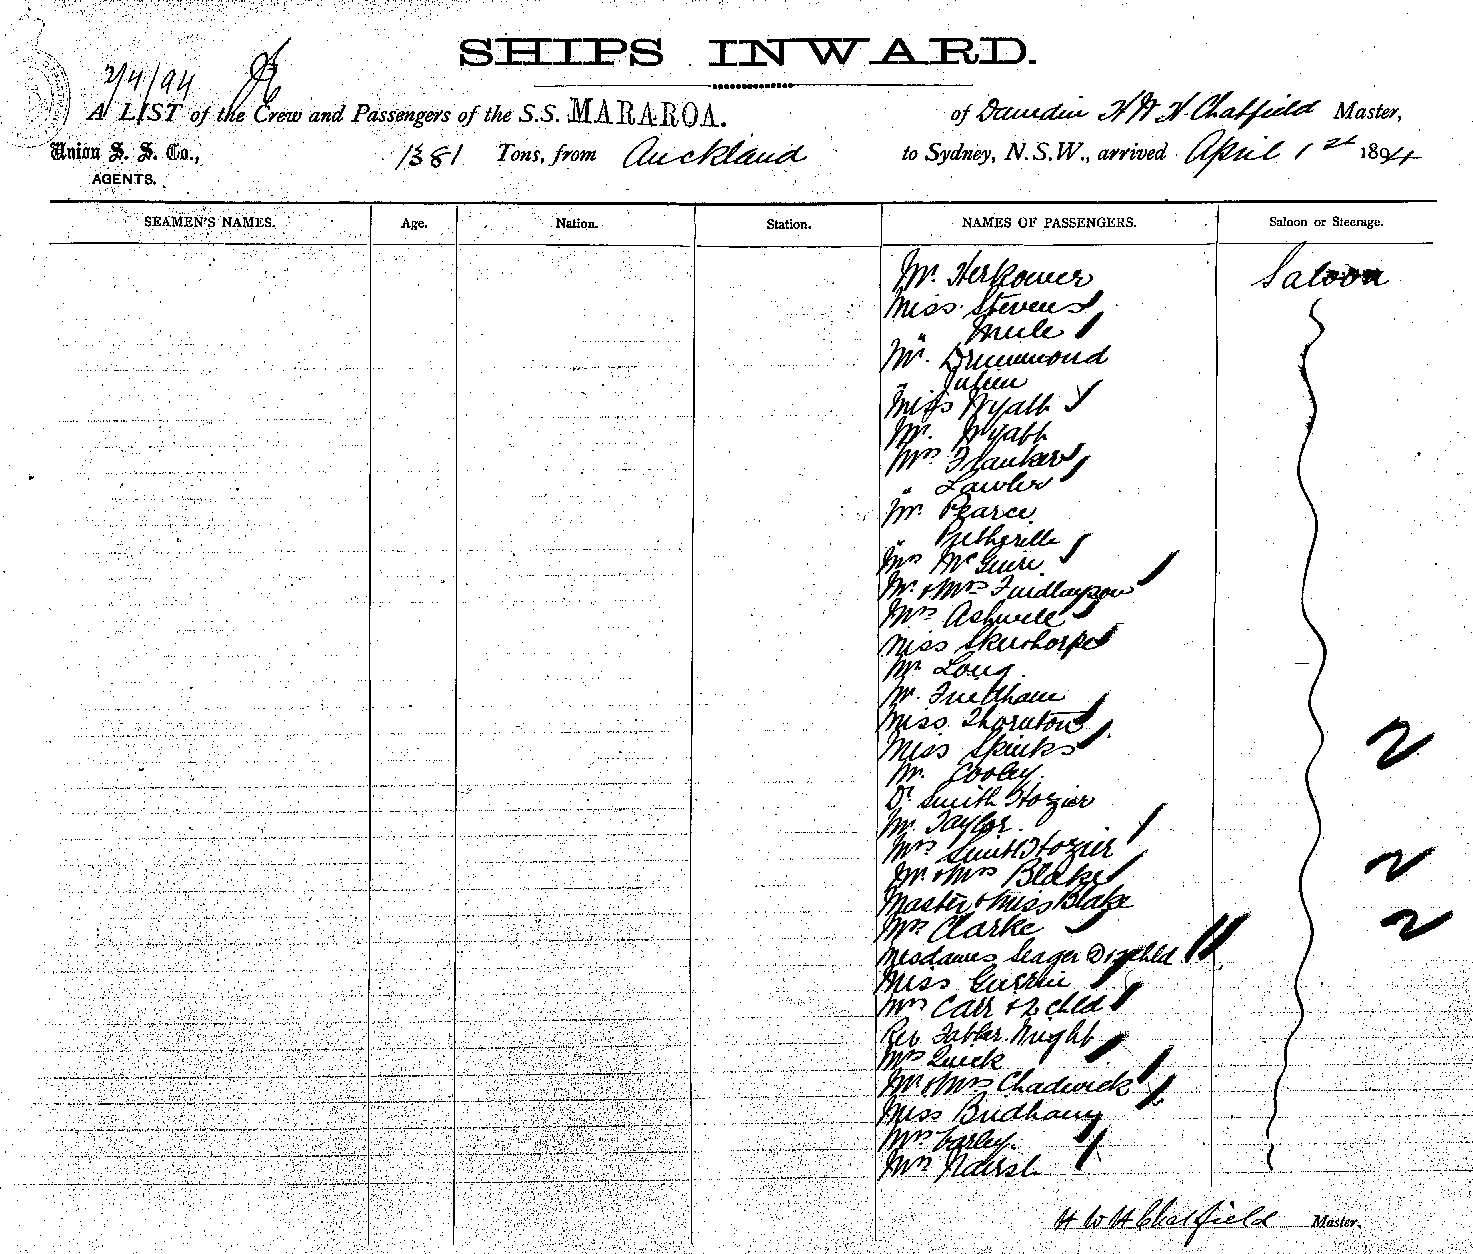 SHIPS INWARD.
2/4/94
A LIST of the Crew and Passengers of the S.S. MARAROA. of Dunedin H W H Chatfield Master,
Union S. S. Co., 1381 Tons, from Auckland to Sydney, N.S.W., arrived April 1st 1894
AGENTS.
SEAMEN'S NAMES. Age. Nation. Station. NAMES OF PASSENGERS. Saloon or Steerage.
Mr. Saloon
Miss Stevens
"
Mr. Drummond
" Julien
Miss Wyatt
Mr. Wyatt
Mrs
" Lawler
Mr. Pearce
"
Mrs McGuire
Mr. & Mrs Findlayson
Mrs Ashwell
Miss Skerthorpe
Mr Long
Mr.
Miss Thornton
Miss Spinks
Mr. Cooley
Dr Smith Hozier
Mr. Taylor
Mrs Smith Hozier
Mr & Mrs Blake
Master & Miss Blake
Mrs Clarke
Mesdames Seager chld
Miss Guerrin
Mrs Carr & 2 chld
Rev Father Wright
Mrs Quick
Mr & Mrs Chadwick
Miss
Mrs
Mrs
2
2
2
H W H Chatfield Master.